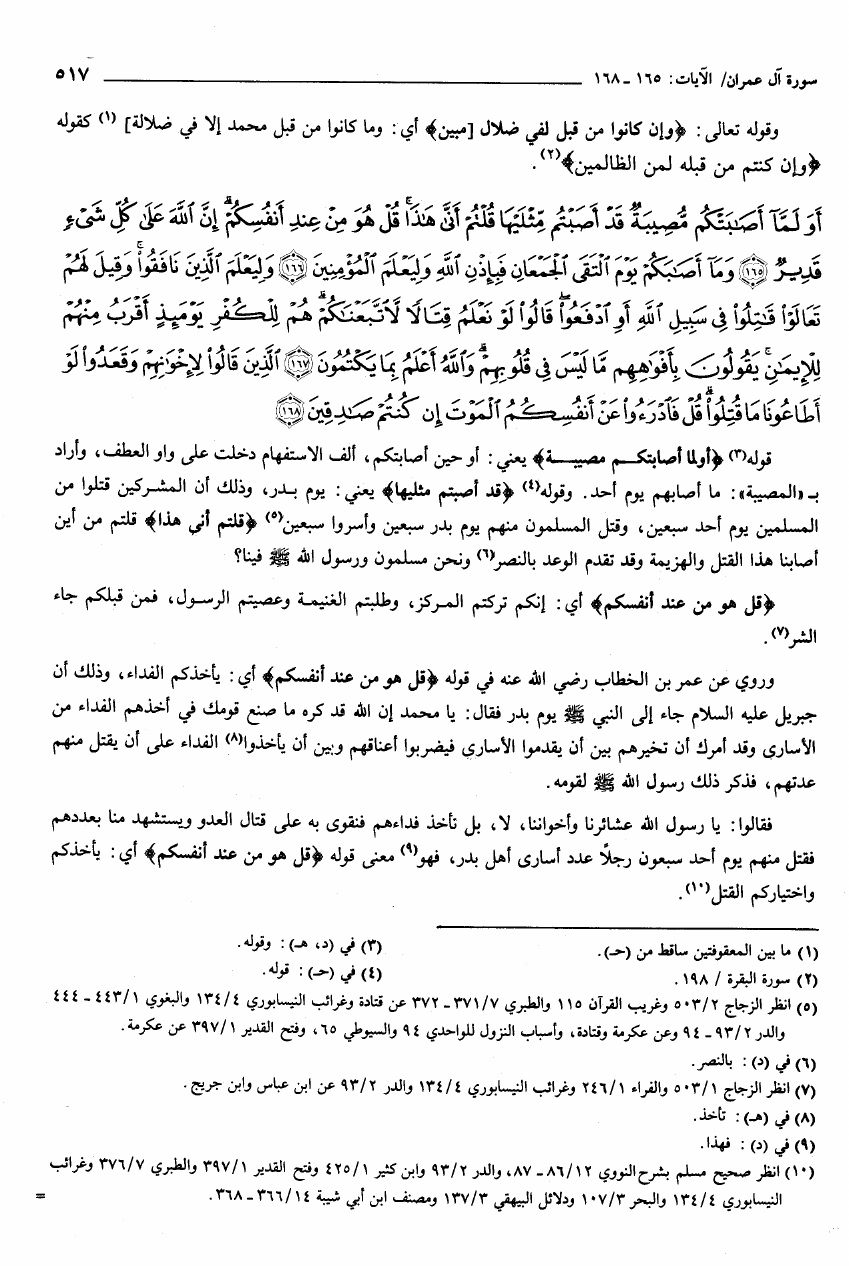 سورة آل عمران/ الآيات: ١٦٥ ـ ١٦٨ ٥١٧
وقوله تعالى: ﴿وإن كانوا من قبل لفي ضلال [مبين﴾ أي: وما كانوا من قبل محمد إلا في ضلالة] (١) كقوله
﴿وإن كنتم من قبله لمن الظالمين﴾(٢).
أَوَ لَمَّآ أَصَٰبَتْكُم مُّصِيبَةٌ قَدْ أَصَبْتُم مِّثْلَيْهَا قُلْتُمْ أَنَّىٰ هَٰذَا ۖ قُلْ هُوَ مِنْ عِندِ أَنفُسِكُمْ ۗ إِنَّ ٱللَّهَ عَلَىٰ كُلِّ شَىْءٍ
قَدِيرٌ ١٦٥ وَمَآ أَصَٰبَكُمْ يَوْمَ ٱلْتَقَى ٱلْجَمْعَانِ فَبِإِذْنِ ٱللَّهِ وَلِيَعْلَمَ ٱلْمُؤْمِنِينَ ١٦٦ وَلِيَعْلَمَ ٱلَّذِينَ نَافَقُوا۟ ۚ وَقِيلَ لَهُمْ
تَعَالَوْا۟ قَٰتِلُوا۟ فِى سَبِيلِ ٱللَّهِ أَوِ ٱدْفَعُوا۟ ۖ قَالُوا۟ لَوْ نَعْلَمُ قِتَالًا لَّٱتَّبَعْنَٰكُمْ ۗ هُمْ لِلْكُفْرِ يَوْمَئِذٍ أَقْرَبُ مِنْهُمْ
لِلْإِيمَٰنِ ۚ يَقُولُونَ بِأَفْوَٰهِهِم مَّا لَيْسَ فِى قُلُوبِهِمْ ۗ وَٱللَّهُ أَعْلَمُ بِمَا يَكْتُمُونَ ١٦٧ ٱلَّذِينَ قَالُوا۟ لِإِخْوَٰنِهِمْ وَقَعَدُوا۟ لَوْ
أَطَاعُونَا مَا قُتِلُوا۟ ۗ قُلْ فَٱدْرَءُوا۟ عَنْ أَنفُسِكُمُ ٱلْمَوْتَ إِن كُنتُمْ صَٰدِقِينَ ١٦٨
قوله(٣) ﴿أولما أصابتكم مصيبة﴾ يعني: أو حين أصابتكم، ألف الاستفهام دخلت على واو العطف، وأراد
بـ «المصيبة»: ما أصابهم يوم أحد. وقوله(٤) ﴿قد أصبتم مثليها﴾ يعني: يوم بدر، وذلك أن المشركين قتلوا من
المسلمين يوم أحد سبعين، وقتل المسلمون منهم يوم بدر سبعين وأسروا سبعين(٥) ﴿قلتم أنى هذا﴾ قلتم من أين
أصابنا هذا القتل والهزيمة وقد تقدم الوعد بالنصر(٦) ونحن مسلمون ورسول الله ﷺ فينا؟
﴿قل هو من عند أنفسكم﴾ أي: إنكم تركتم المركز، وطلبتم الغنيمة وعصيتم الرسول، فمن قبلكم جاء
الشر(٧).
وروي عن عمر بن الخطاب رضي الله عنه في قوله ﴿قل هو من عند أنفسكم﴾ أي: يأخذكم الفداء، وذلك أن
جبريل عليه السلام جاء إلى النبي ﷺ يوم بدر فقال: يا محمد إن الله قد كره ما صنع قومك في أخذهم الفداء من
الأسارى وقد أمرك أن تخيرهم بين أن يقدموا الأسارى فيضربوا أعناقهم وبين أن يأخذوا(٨) الفداء على أن يقتل منهم
عدتهم، فذكر ذلك رسول الله ﷺ لقومه.
فقالوا: يا رسول الله عشائرنا وأخواننا، لا، بل نأخذ فداءهم فنقوى به على قتال العدو ويستشهد منا بعددهم
فقتل منهم يوم أحد سبعون رجلاً عدد أسارى أهل بدر، فهو(٩) معنى قوله ﴿قل هو من عند أنفسكم﴾ أي: يأخذكم
واختياركم القتل(١٠).
(١) ما بين المعقوفتين ساقط من (حـ). (٣) في (د، هـ): وقوله.
(٢) سورة البقرة / ١٩٨. (٤) في (حـ): قوله.
(٥) انظر الزجاج ٥٠٣/٢ وغريب القرآن ١١٥ والطبري ٣٧١/٧ ـ ٣٧٢ عن قتادة وغرائب النيسابوري ١٣٤/٤ والبغوي ٤٤٣/١ ـ ٤٤٤
والدر ٩٣/٢ ـ ٩٤ وعن عكرمة وقتادة، وأسباب النزول للواحدي ٩٤ والسيوطي ٦٥، وفتح القدير ٣٩٧/١ عن عكرمة.
(٦) في (د): بالنصر.
(٧) انظر الزجاج ٥٠٣/١ والفراء ٢٤٦/١ وغرائب النيسابوري ١٣٤/٤ والدر ٩٣/٢ عن ابن عباس وابن جريج.
(٨) في (هـ): تأخذ.
(٩) في (د): فهذا.
(١٠) انظر صحيح مسلم بشرح النووي ٨٦/١٢ ـ ٨٧، والدر ٩٣/٢ وابن كثير ٤٢٥/١ وفتح القدير ٣٩٧/١ والطبري ٣٧٦/٧ وغرائب
النيسابوري ١٣٤/٤ والبحر ١٠٧/٣ ودلائل البيهقي ١٣٧/٣ ومصنف ابن أبي شيبة ٣٦٦/١٤ ـ ٣٦٨. =